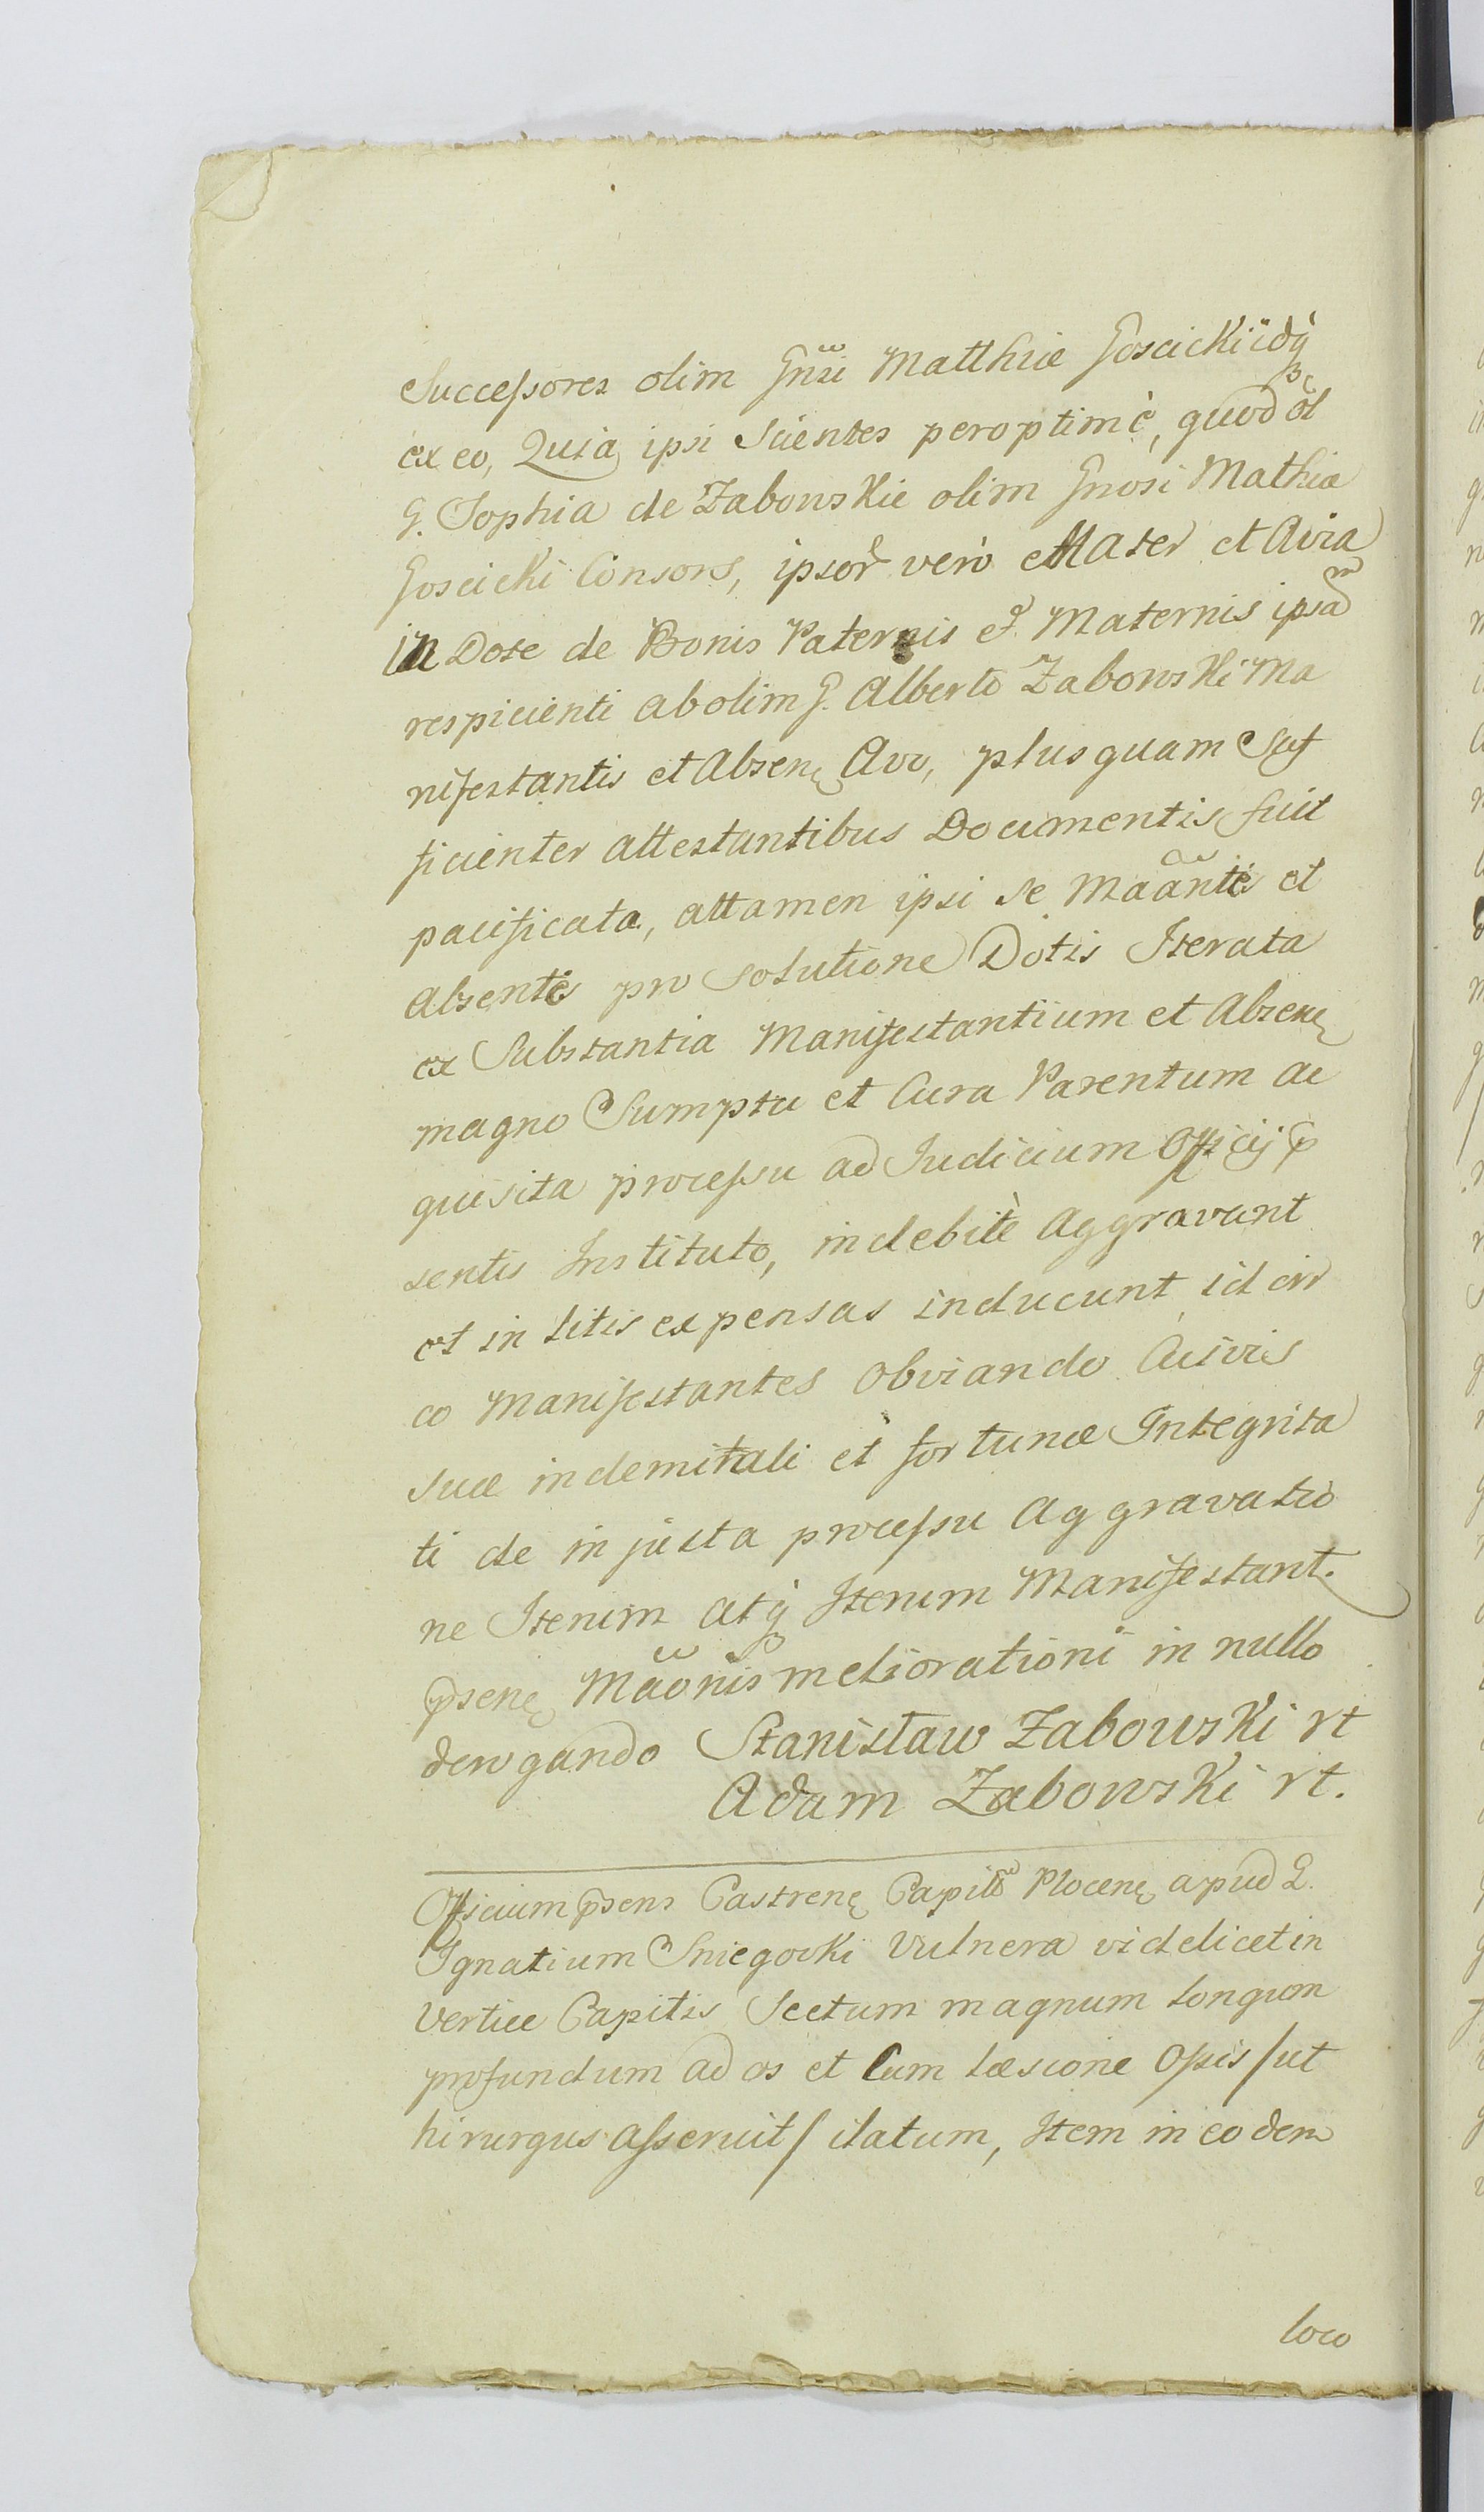 Successores olim Gnsi Matthiæ Goscicki idq̀
ex eo, Quia ipsi Scientes peroptimè, quod ol
G. Sophia de Zabowskie olim Gnosi Mathiæ
Goscicki Consors, ipsor verò Mater et Avia
in Dote de Bonis Paternis et Maternis ipsam
respicienti ab olim G. Alberto Zabowski Ma
nifestantis et Absen Avo, plusquam Suf
ficienter attestantibus Documentis fuit
pacificata, attamen ipsi se Maantes et
absentes pro Solutione Dotis Iterata
ex Substantia Manifestantium et Absen
magno Sumptu et Cura Parentum ac
quisita processu ad Judicium Officij p
sentis Instituto, indebitè aggravant
et in litis expensas inducunt, id cir
co Manifestantes Obviando Cuivis
suæ indemitati et fortunæ Integrita
ti de injusta processu aggravatio
ne Iterum atq̀ Iterum Manifestant.
psen Maonis meliorationi in nullo
derogando Stanisław Zabowski rt
Adam Zabowski rt.
Officium psens Castren Capitle Plocen apud G.
Ignatium Sniegocki Vulnera videlicet in
Vertice Capitis Sectum magnum longum
profundum ad os et Cum læsione Ossis /ut
hirurgus asseruit/ ilatum, Item in eodem
loco